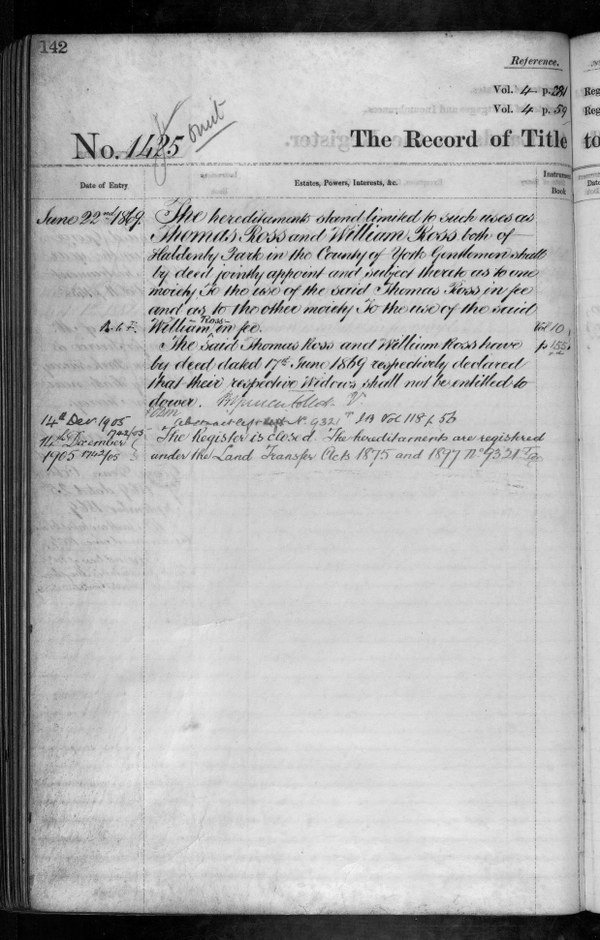 142
Reference.
Vol. 4 p. 281
Vol. 4 p. 59
omit
No. 1425 The Record of Title
Date of Entry Estates, Powers, Interests, &c. Instrument Book
June 22nd 1869. The hereditaments stand limited to such uses as
Thomas Ross and William Ross both of
Park in the County of York Gentlemen shall
by deed jointly appoint and subject thereto as to one
moiety To the use of the said Thomas Ross in fee
and as to the other moiety To the use of the said
Ross
William, in fee. Vol 10
The said Thomas Ross and William Ross have p 155
by deed dated 17th June 1869 respectively declared
that their respective Widows shall not be entitled to
dower.
14th Dec 1905 No. 9321 IB Vol 118 p. 56
14th December The Register is closed. The hereditaments are registered
1905 under the Land Transfer Acts 1875 and 1897 No 9321